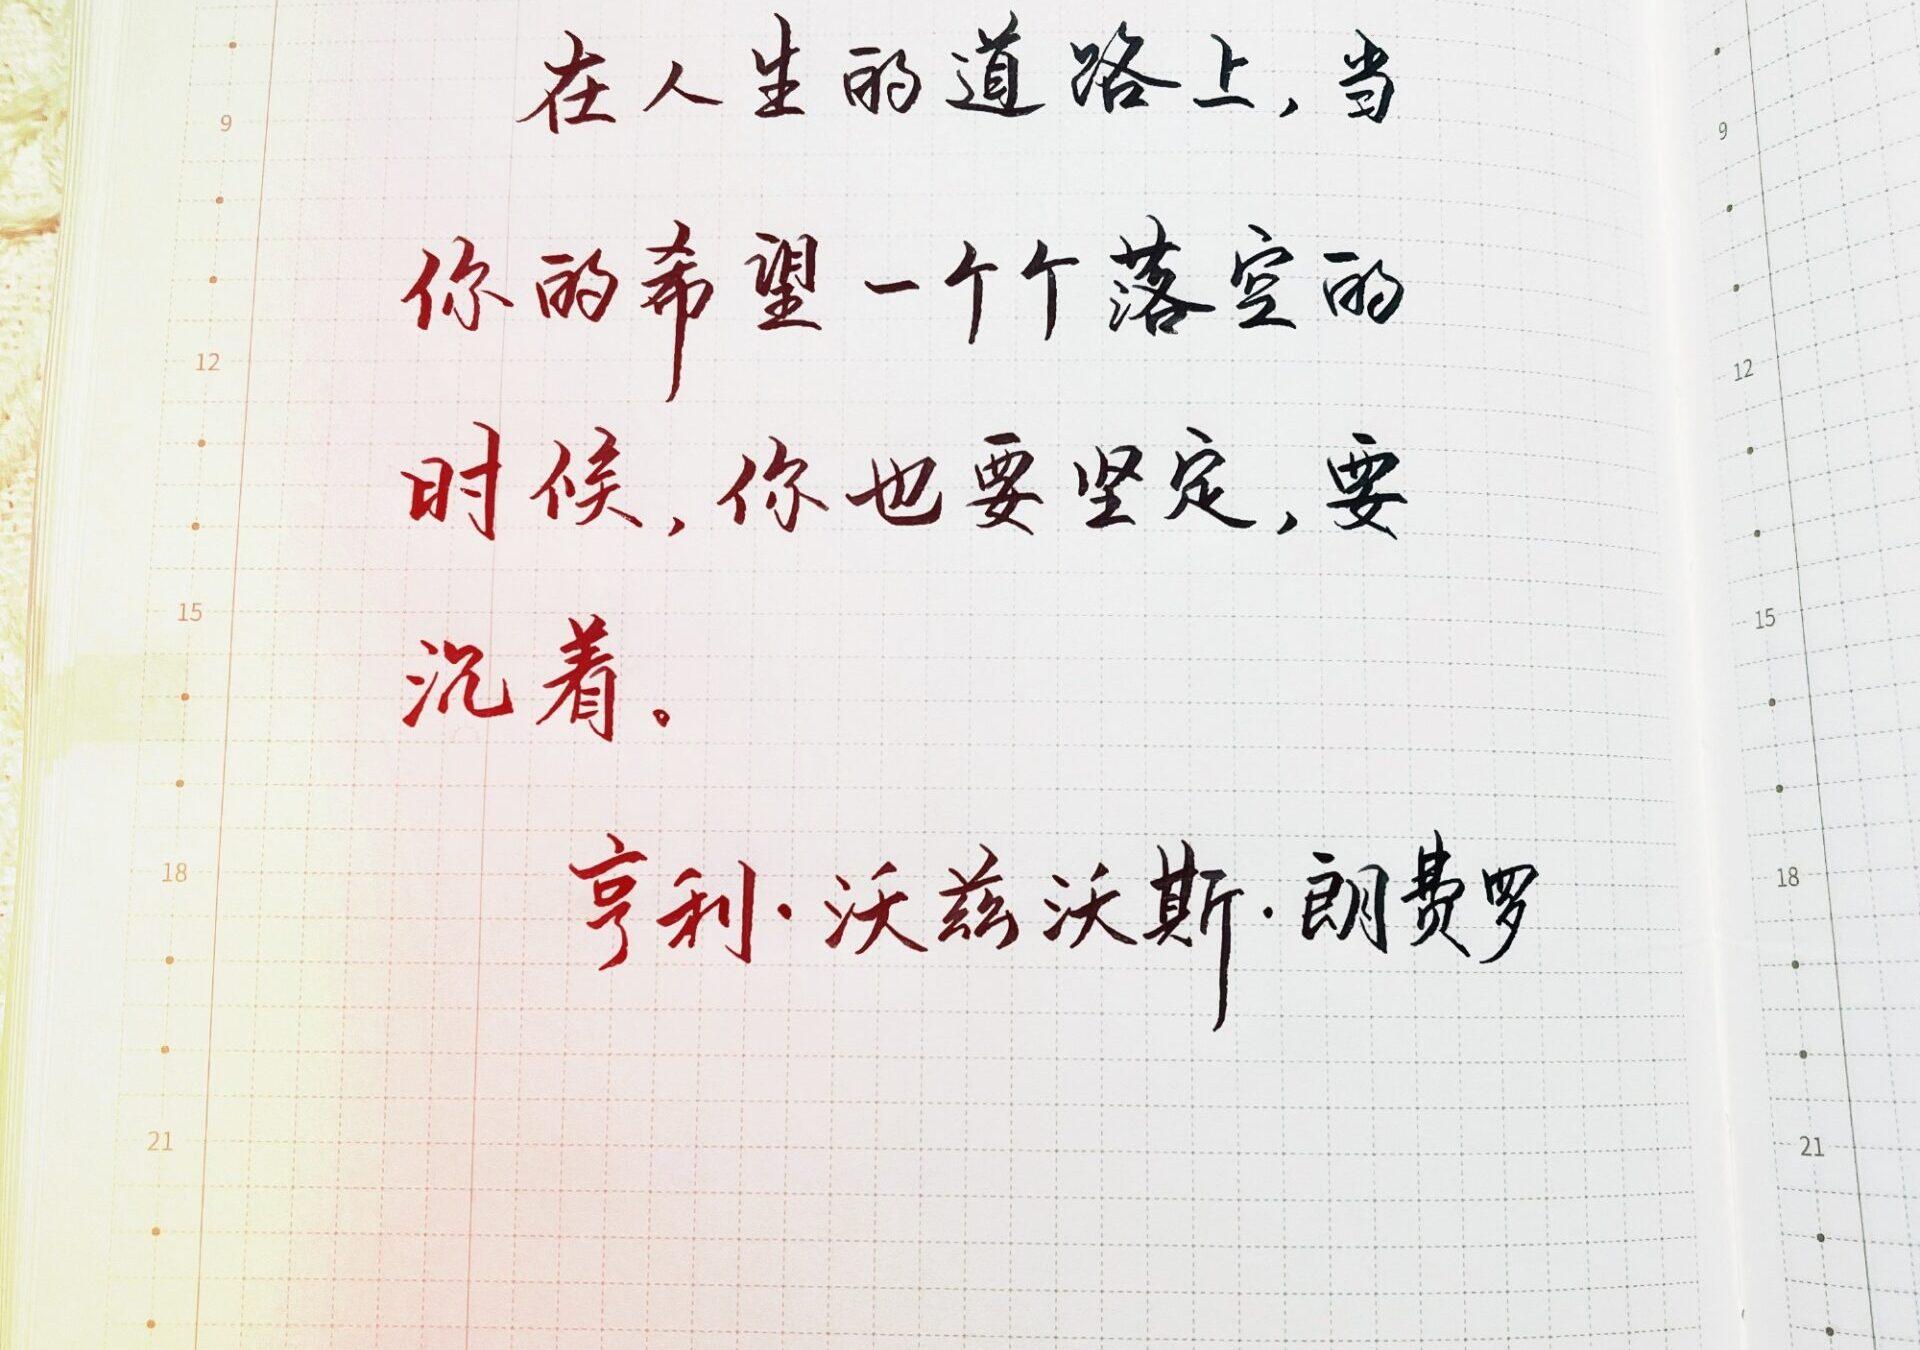 在人生的道路上,当
你的希望一个个落空的
时候,你也要坚定,要
沉着。
亨利·沃兹沃斯·朗费罗
9
12
15
18
21
9
12
15
18
21